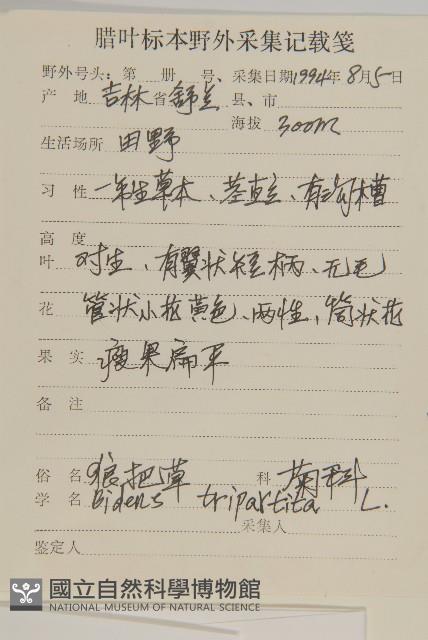 腊叶标本野外采集记载笺
野外号头：第 册 号、采集日期1994年8月5日
产 地 吉林省舒兰县、市
海拔 300m
生活场所 田野
习 性 一年生草本、茎直立、有沟槽
高 度
叶 对生、有翼状短柄、无毛
花 管状小花黄色、两性，筒状花
果 实 瘦果扁平
备 注
俗 名 狼把草 科 菊科
学 名 Bidens tripartita L.
采集人
鉴定人
國立自然科學博物館
NATIONAL MUSEUM OF NATURAL SCIENCE